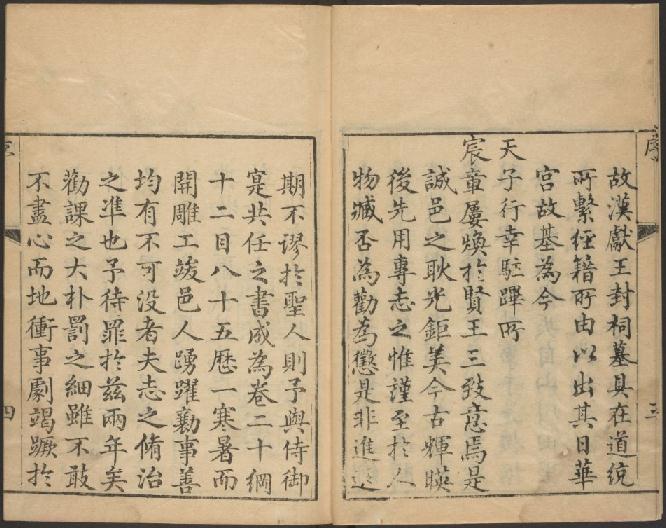 故漢獻王封祠墓具在道統
所繫經籍所由以出其日華
宮故基為今
天子行幸駐蹕所
宸章屢煥於賢王三致意焉是
誠邑之耿光鉅美今古輝暎
後先用專志之惟謹至於人
物臧否為勸為懲是非進退
三
期不謬於聖人則予與侍御
寔共任之書成為卷二十綱
十二目八十五歷一寒暑而
開雕工竣邑人踴躍勷事善
均有不可没者夫志之脩治
之準也予待罪於兹兩年矣
勸課之大朴罰之細雖不敢
不盡心而地衝事劇竭蹶於
四